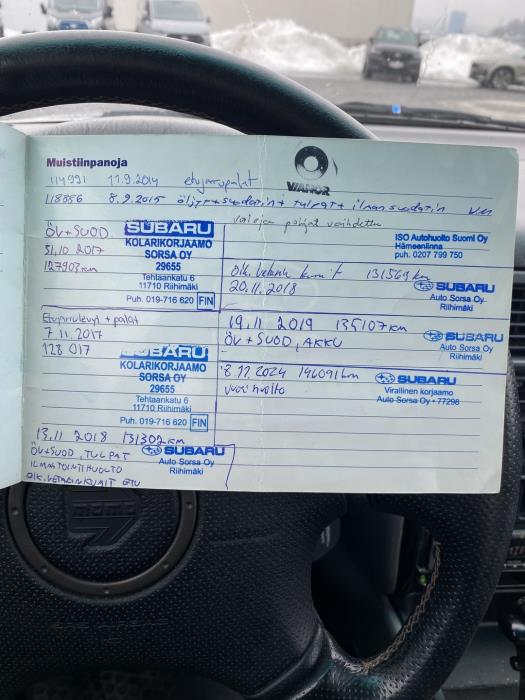 Muistiinpanoja
VIANOR
114991 11.9.2014 etujarrupalat
118856 8.9.2015 öljyt+suodatin+tulpat+ilmansuodatin
valojen pohjat vaihdettu
ISO Autohuolto Suomi Oy
Hämeenlinna
puh. 0207 799 750
ÖV+SUOD
31,10 2017
127903 km
SUBARU
KOLARIKORJAAMO
SORSA OY
29655
Tehtaankatu 6
11710 Riihimäki
Puh. 019-716 620 FIN
Oik. vetoniv kumit 131569 km
20.11.2018
SUBARU
Auto Sorsa Oy
Riihimäki
Etujarrulevyt + palat
7.11.2017
128 017
SUBARU
KOLARIKORJAAMO
SORSA OY
29655
Tehtaankatu 6
11710 Riihimäki
Puh. 019-716 620 FIN
19.11 2019 135107 km
ÖV + SUOD, AKKU
SUBARU
Auto Sorsa Oy
Riihimäki
146091 km
vuosihuolto
SUBARU
Virallinen korjaamo
Auto Sorsa Oy • 77298
13.11 2018 131302 km
ÖV+SUOD, TULPAT
ILMASTOINTIHUOLTO
OIK. VETARINKUMIT ETU
SUBARU
Auto Sorsa Oy
Riihimäki
MOMO